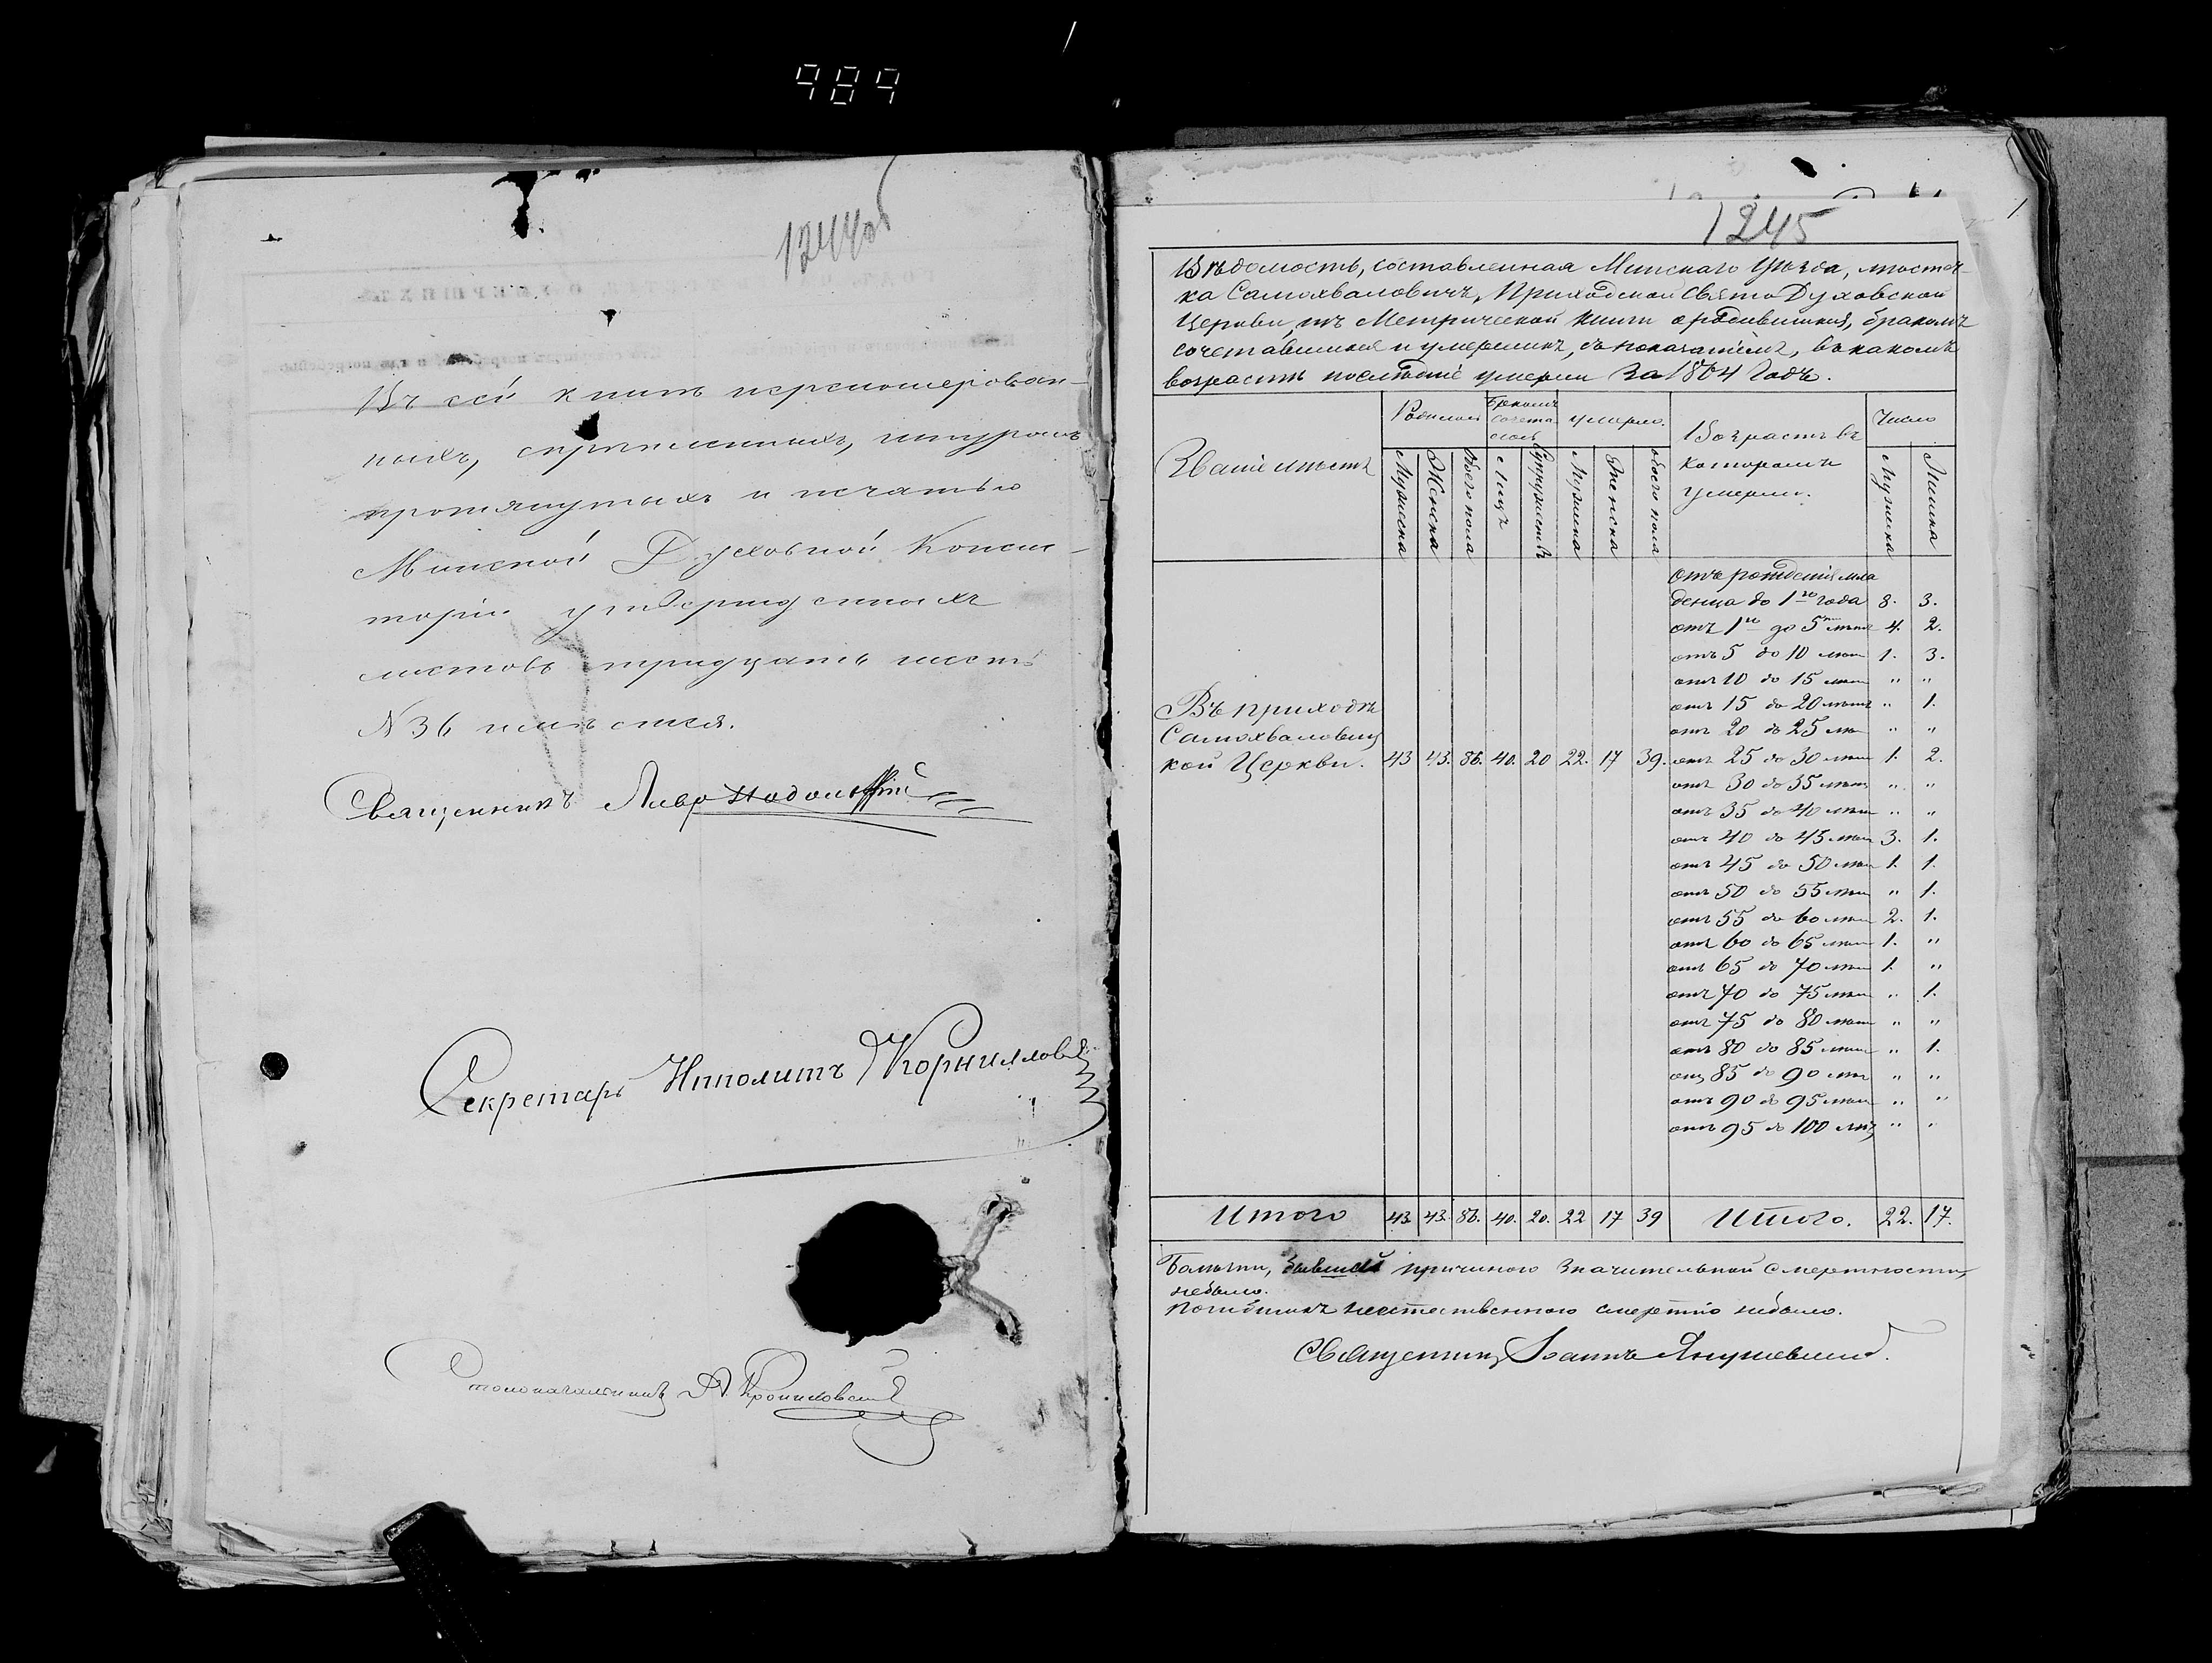 989
1244об
Въ сей книгѣ перенумерован-
ныхъ, скрѣпленныхъ, шнуромъ
протянутыхъ и печатью
Минской Духовной Консис-
торіи утвержденныхъ
листовъ тридцать шесть
N 36 имѣется.
Священникъ
Секретарь Ипполитъ Корниловъ
Столоначальникъ
1245
Вѣдомость, составленная Минскаго Уѣзда, мѣстеч-
ка Самохваловичъ, Приходской Свято Духовской
Церкви, изъ Метрической книги о родившихся, бракомъ
сочетавшихся и умершихъ, съ показаніемъ, въ какомъ
возрастѣ послѣдніе умерли за 1864 Годъ.
Званіе мѣстъ
Родилось
Бракомъ
сочета
лось
умерло.
Возрастъ въ
которомъ
умерли.
Число
Мужеска
Женска
Обоего пола
Лицъ
Супружествъ
Мужеска
Женска
обоего пола
Мужеска
Женска
отъ рожденія мла
денца до 1го года 8. 3.
отъ 1го до 5ти лѣтъ 4. 2.
отъ 5 до 10 лѣт 1. 3.
отъ 10 до 15 лѣт " "
Въ приходѣ отъ 15 до 20 лѣтъ " 1.
Самохваловиц отъ 20 до 25 лѣ " "
кой Церкви. 43 43. 86. 40. 20 22. 17 39. отъ 25 до 30 лѣт 1. 2.
отъ 30 до 35 лѣтъ " "
отъ 35 до 40 лѣт " "
отъ 40 до 45 лѣт 3. 1.
отъ 45 до 50 лѣт 1. 1.
отъ 50 до 55 лѣт " 1.
отъ 55 до 60 лѣт 2. 1.
отъ 60 до 65 лѣт 1. "
отъ 65 до 70 лѣт 1. "
отъ 70 до 75 лѣт " 1.
отъ 75 до 80 лѣт " "
отъ 80 до 85 лѣт " 1.
отъ 85 до 90 лѣт " "
отъ 90 до 95 лѣт " "
отъ 95 до 100 лѣтъ " "
Итого 43. 43. 86. 40. 20. 22 17 39 Итого. 22. 17.
Болѣзни, бывшей причиною значительной смертности,
небыло.
Погибшихъ неестественною смертію небыло.
Священникъ Іоаннъ Янушевичъ.